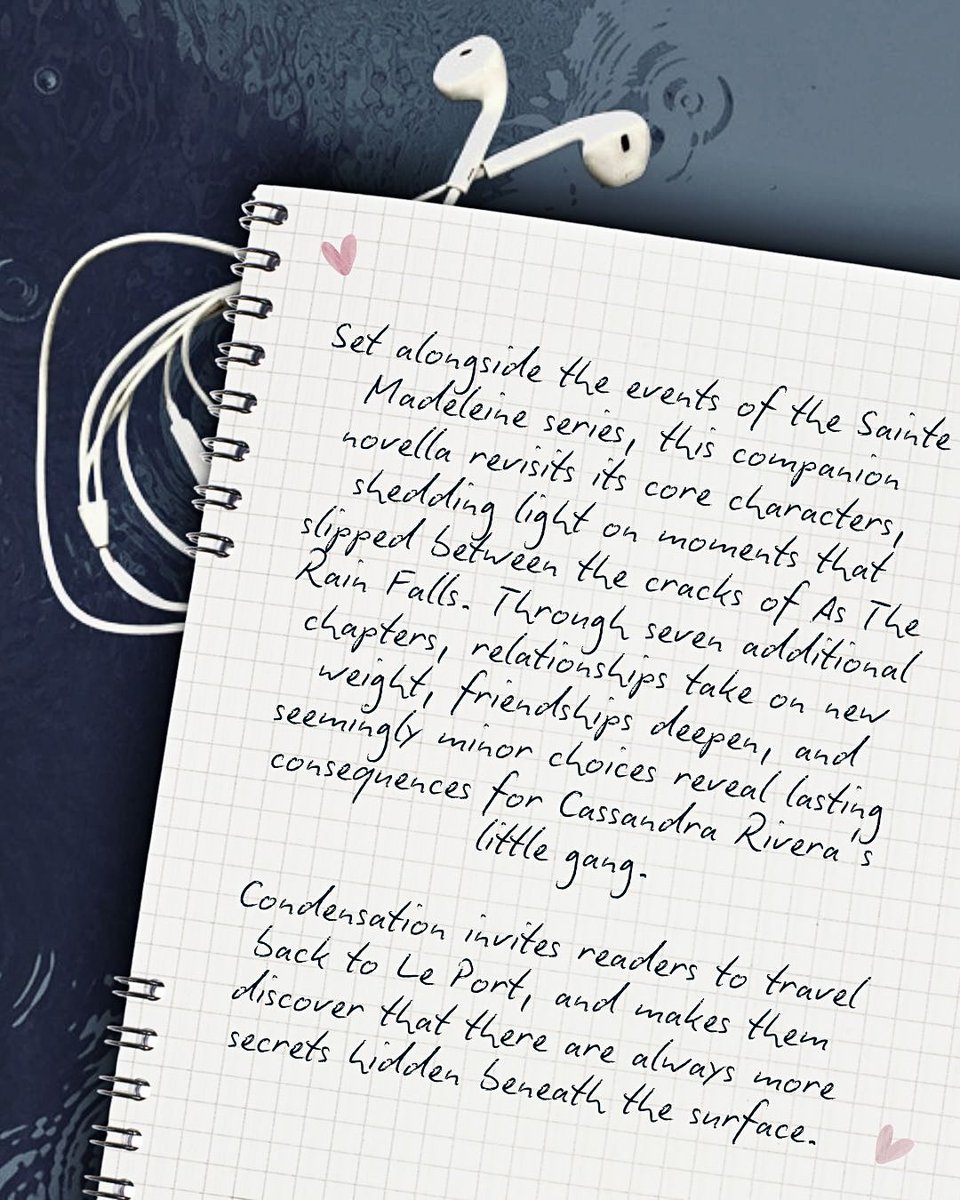 Set alongside the events of the Sainte
Madeleine series, this companion
novella revisits its core characters,
shedding light on moments that
slipped between the cracks of As The
Rain Falls. Through seven additional
chapters, relationships take on new
weight, friendships deepen, and
seemingly minor choices reveal lasting
consequences for Cassandra Rivera's
little gang.
Condensation invites readers to travel
back to Le Port, and makes them
discover that there are always more
secrets hidden beneath the surface.